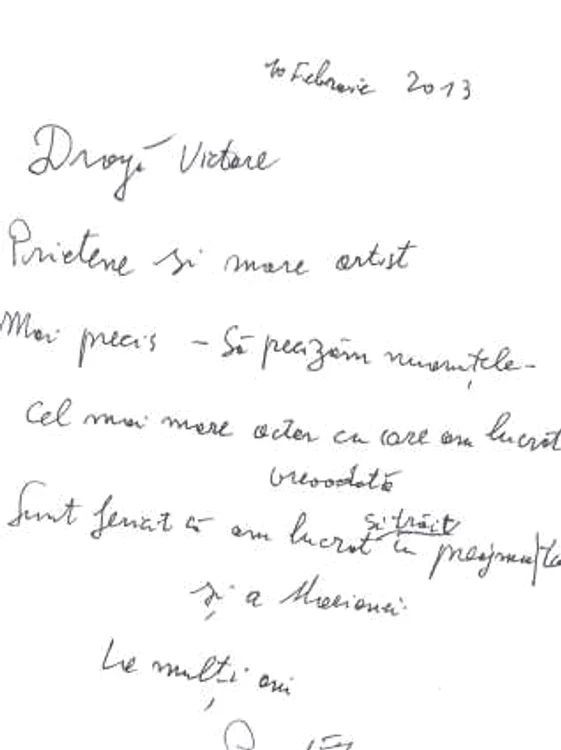 10 Februarie 2013
Dragă Victore
Prietene și mare artist
Mai precis - Să precizăm nuanțele -
Cel mai mare actor cu care am lucrat
vreodată
Sunt fericit că am lucrat și trăit în preajma ta
și a Marianei
La mulți ani